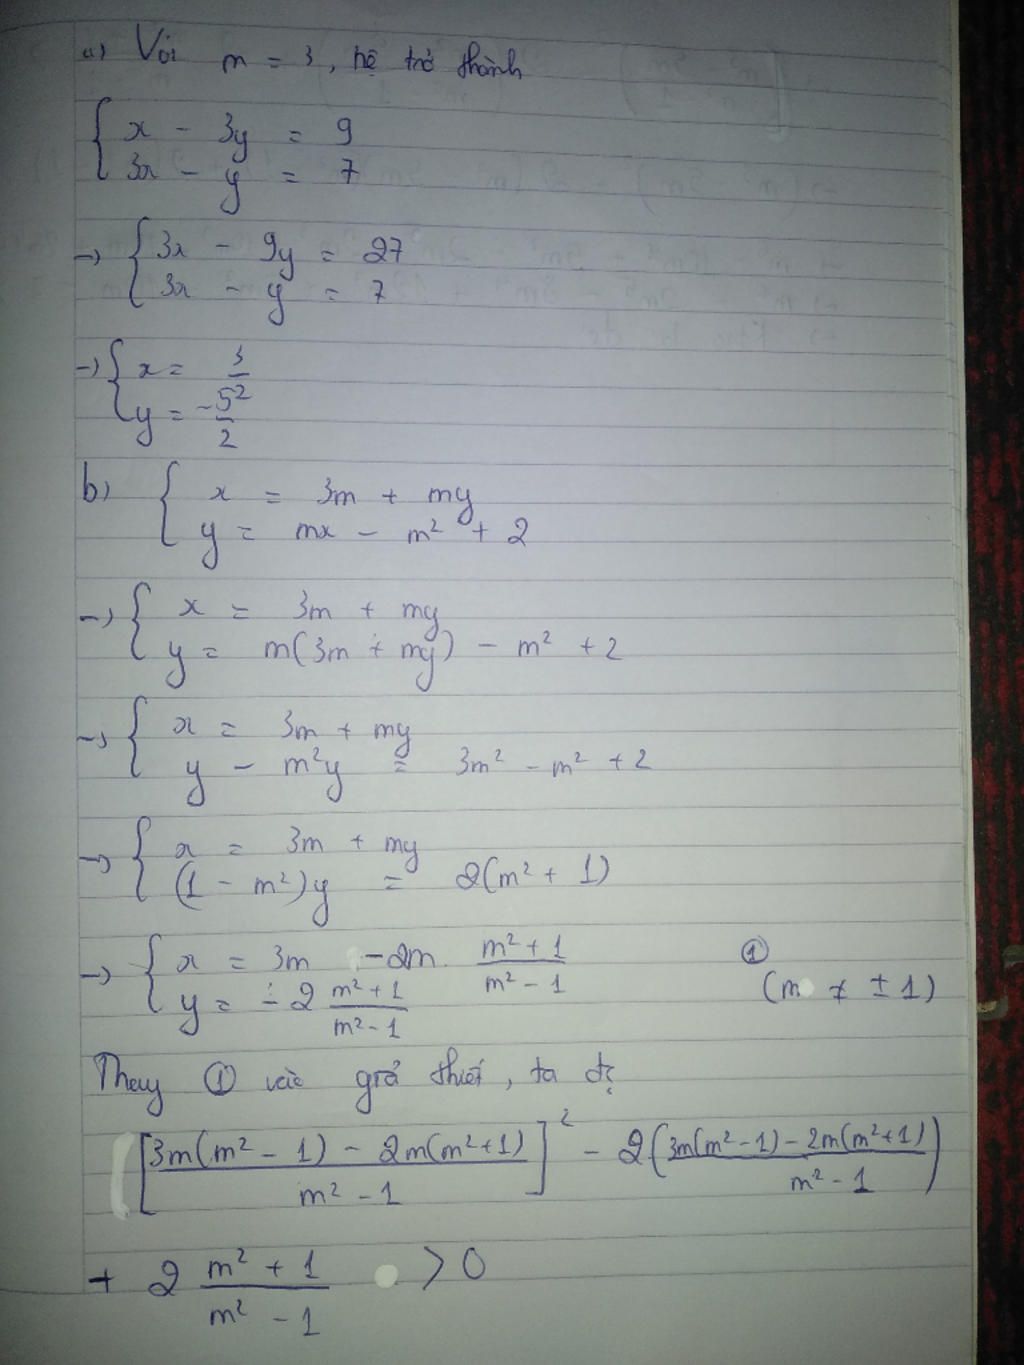 a) Với m = 3, hệ trở thành
{ x - 3y = 9
3x - y = 7
→ { 3x - 9y = 27
3x - y = 7
→ { x = 3/2
y = -5/2
b) { x = 3m + my
y = mx - m² + 2
→ { x = 3m + my
y = m(3m + my) - m² + 2
→ { x = 3m + my
y - m²y = 3m² - m² + 2
→ { x = 3m + my
(1 - m²)y = 2(m² + 1)
→ { x = 3m - 2m. (m² + 1)/(m² - 1) ①
y = -2 (m² + 1)/(m² - 1) (m ≠ ±1)
Thay ① vào giả thiết, ta đc
[(3m(m² - 1) - 2m(m² + 1))/(m² - 1)]² - 2((3m(m² - 1) - 2m(m² + 1))/(m² - 1))
+ 2 (m² + 1)/(m² - 1) > 0